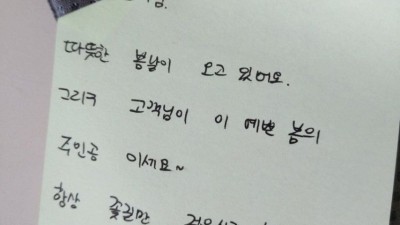 따뜻한 봄날이 오고 있어요.
그리고 고객님이 이 예쁜 봄의
주인공 이세요~
항상 꽃길만